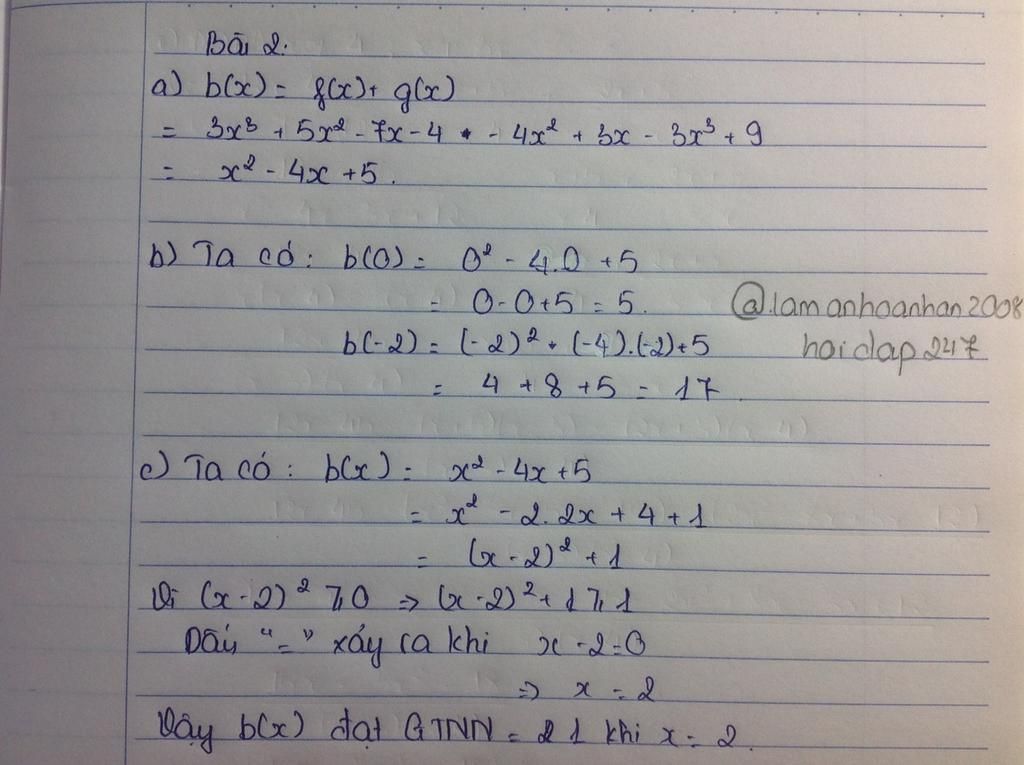 Bài 2.
a) b(x) = f(x) + g(x)
= 3x³ + 5x² - 7x - 4 - 4x² + 3x - 3x³ + 9
= x² - 4x + 5.
b) Ta có: b(0) = 0² - 4.0 + 5
= 0 - 0 + 5 = 5.
@lamanhoanhan2008
b(-2) = (-2)² + (-4).(-2) + 5
hoidap247
= 4 + 8 + 5 = 17.
c) Ta có: b(x) = x² - 4x + 5
= x² - 2.2x + 4 + 1
= (x - 2)² + 1
Vì (x - 2)² ≥ 0 ⇒ (x - 2)² + 1 ≥ 1
Dấu "=" xảy ra khi x - 2 = 0
⇒ x = 2
Vậy b(x) đạt GTNN = 1 khi x = 2.